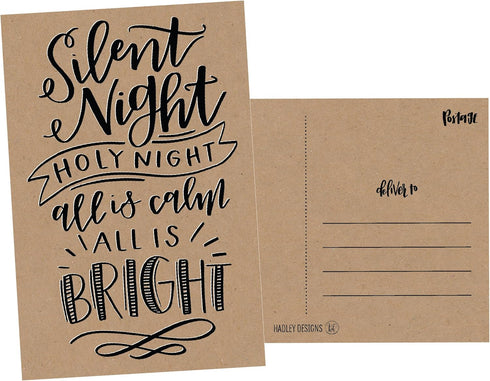 Silent
Night
HOLY NIGHT
all is calm
ALL IS
BRIGHT
Postage
deliver to
HADLEY DESIGNS